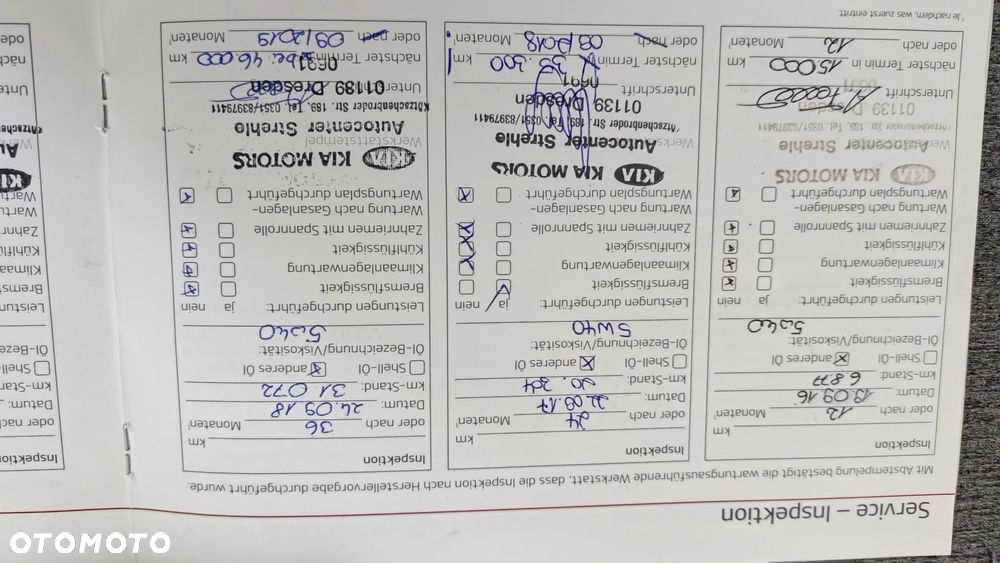 Service – Inspektion
Mit Abstempelung bestätigt die wartungsausführende Werkstatt, dass die Inspektion nach Herstellervorgabe durchgeführt wurde.
Inspektion
km
oder nach 12 Monaten
Datum: 13.09.16
km-Stand: 6.877
Öl-Bezeichnung/Viskosität:
Shell-Öl anderes Öl
5W40
Leistungen durchgeführt: ja nein
Bremsflüssigkeit
Klimaanlagenwartung
Kühlflüssigkeit
Zahnriemen mit Spannrolle
Wartung nach Gasanlagen-
Wartungsplan durchgeführt
KIA MOTORS
Autocenter Strehle
Tel. 0351/83979411
01139 Dresden
Unterschrift
nächster Termin in 15000 km
oder nach 12 Monaten¹
¹ Je nachdem, was zuerst eintritt.
Inspektion
km
oder nach 24 Monaten
Datum: 22.09.17
km-Stand: 20.304
Öl-Bezeichnung/Viskosität:
Shell-Öl anderes Öl
5W40
Leistungen durchgeführt: ja nein
Bremsflüssigkeit
Klimaanlagenwartung
Kühlflüssigkeit
Zahnriemen mit Spannrolle
Wartung nach Gasanlagen-
Wartungsplan durchgeführt
KIA KIA MOTORS
Autocenter Strehle
Str. 189, Tel. 0351/83979411
01139 Dresden
Unterschrift
nächster Termin 35.300 km
oder nach 09/2018 Monaten¹
Inspektion
km
oder nach 36 Monaten
Datum: 24.09.18
km-Stand: 31.072
Öl-Bezeichnung/Viskosität:
Shell-Öl anderes Öl
5W40
Leistungen durchgeführt: ja nein
Bremsflüssigkeit
Klimaanlagenwartung
Kühlflüssigkeit
Zahnriemen mit Spannrolle
Wartung nach Gasanlagen-
Wartungsplan durchgeführt
KIA KIA MOTORS
Werkstattstempel
Autocenter Strehle
Kötzschenbroder Str. 189, Tel. 0351/83979411
01139 Dresden
Unterschrift
nächster Termin 46.000 km
oder nach 09/2019 Monaten¹
oder
Datum:
km-Stand:
Öl-Bezei
Shell-Öl
Leistun
Bremsfl
Klimaan
Kühlflü
Zahnr
Wartu
Wart
KIA
Au
Unter
nächs
oder
OTOMOTO